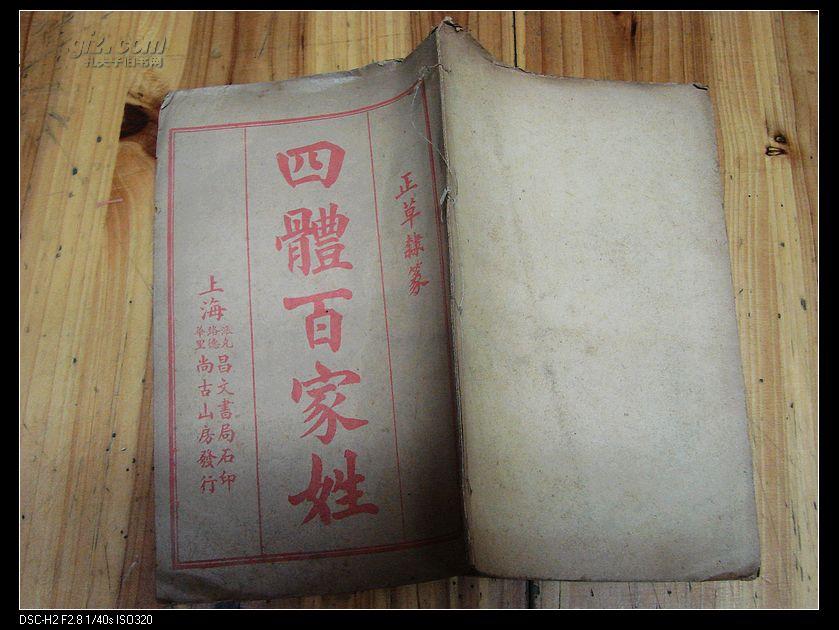 正草隸篆
四體百家姓
上海
派克
路德
華里
昌文書局石印
尚古山房發行
孔夫子旧书网
DSC-H2 F2.8 1/40s ISO320